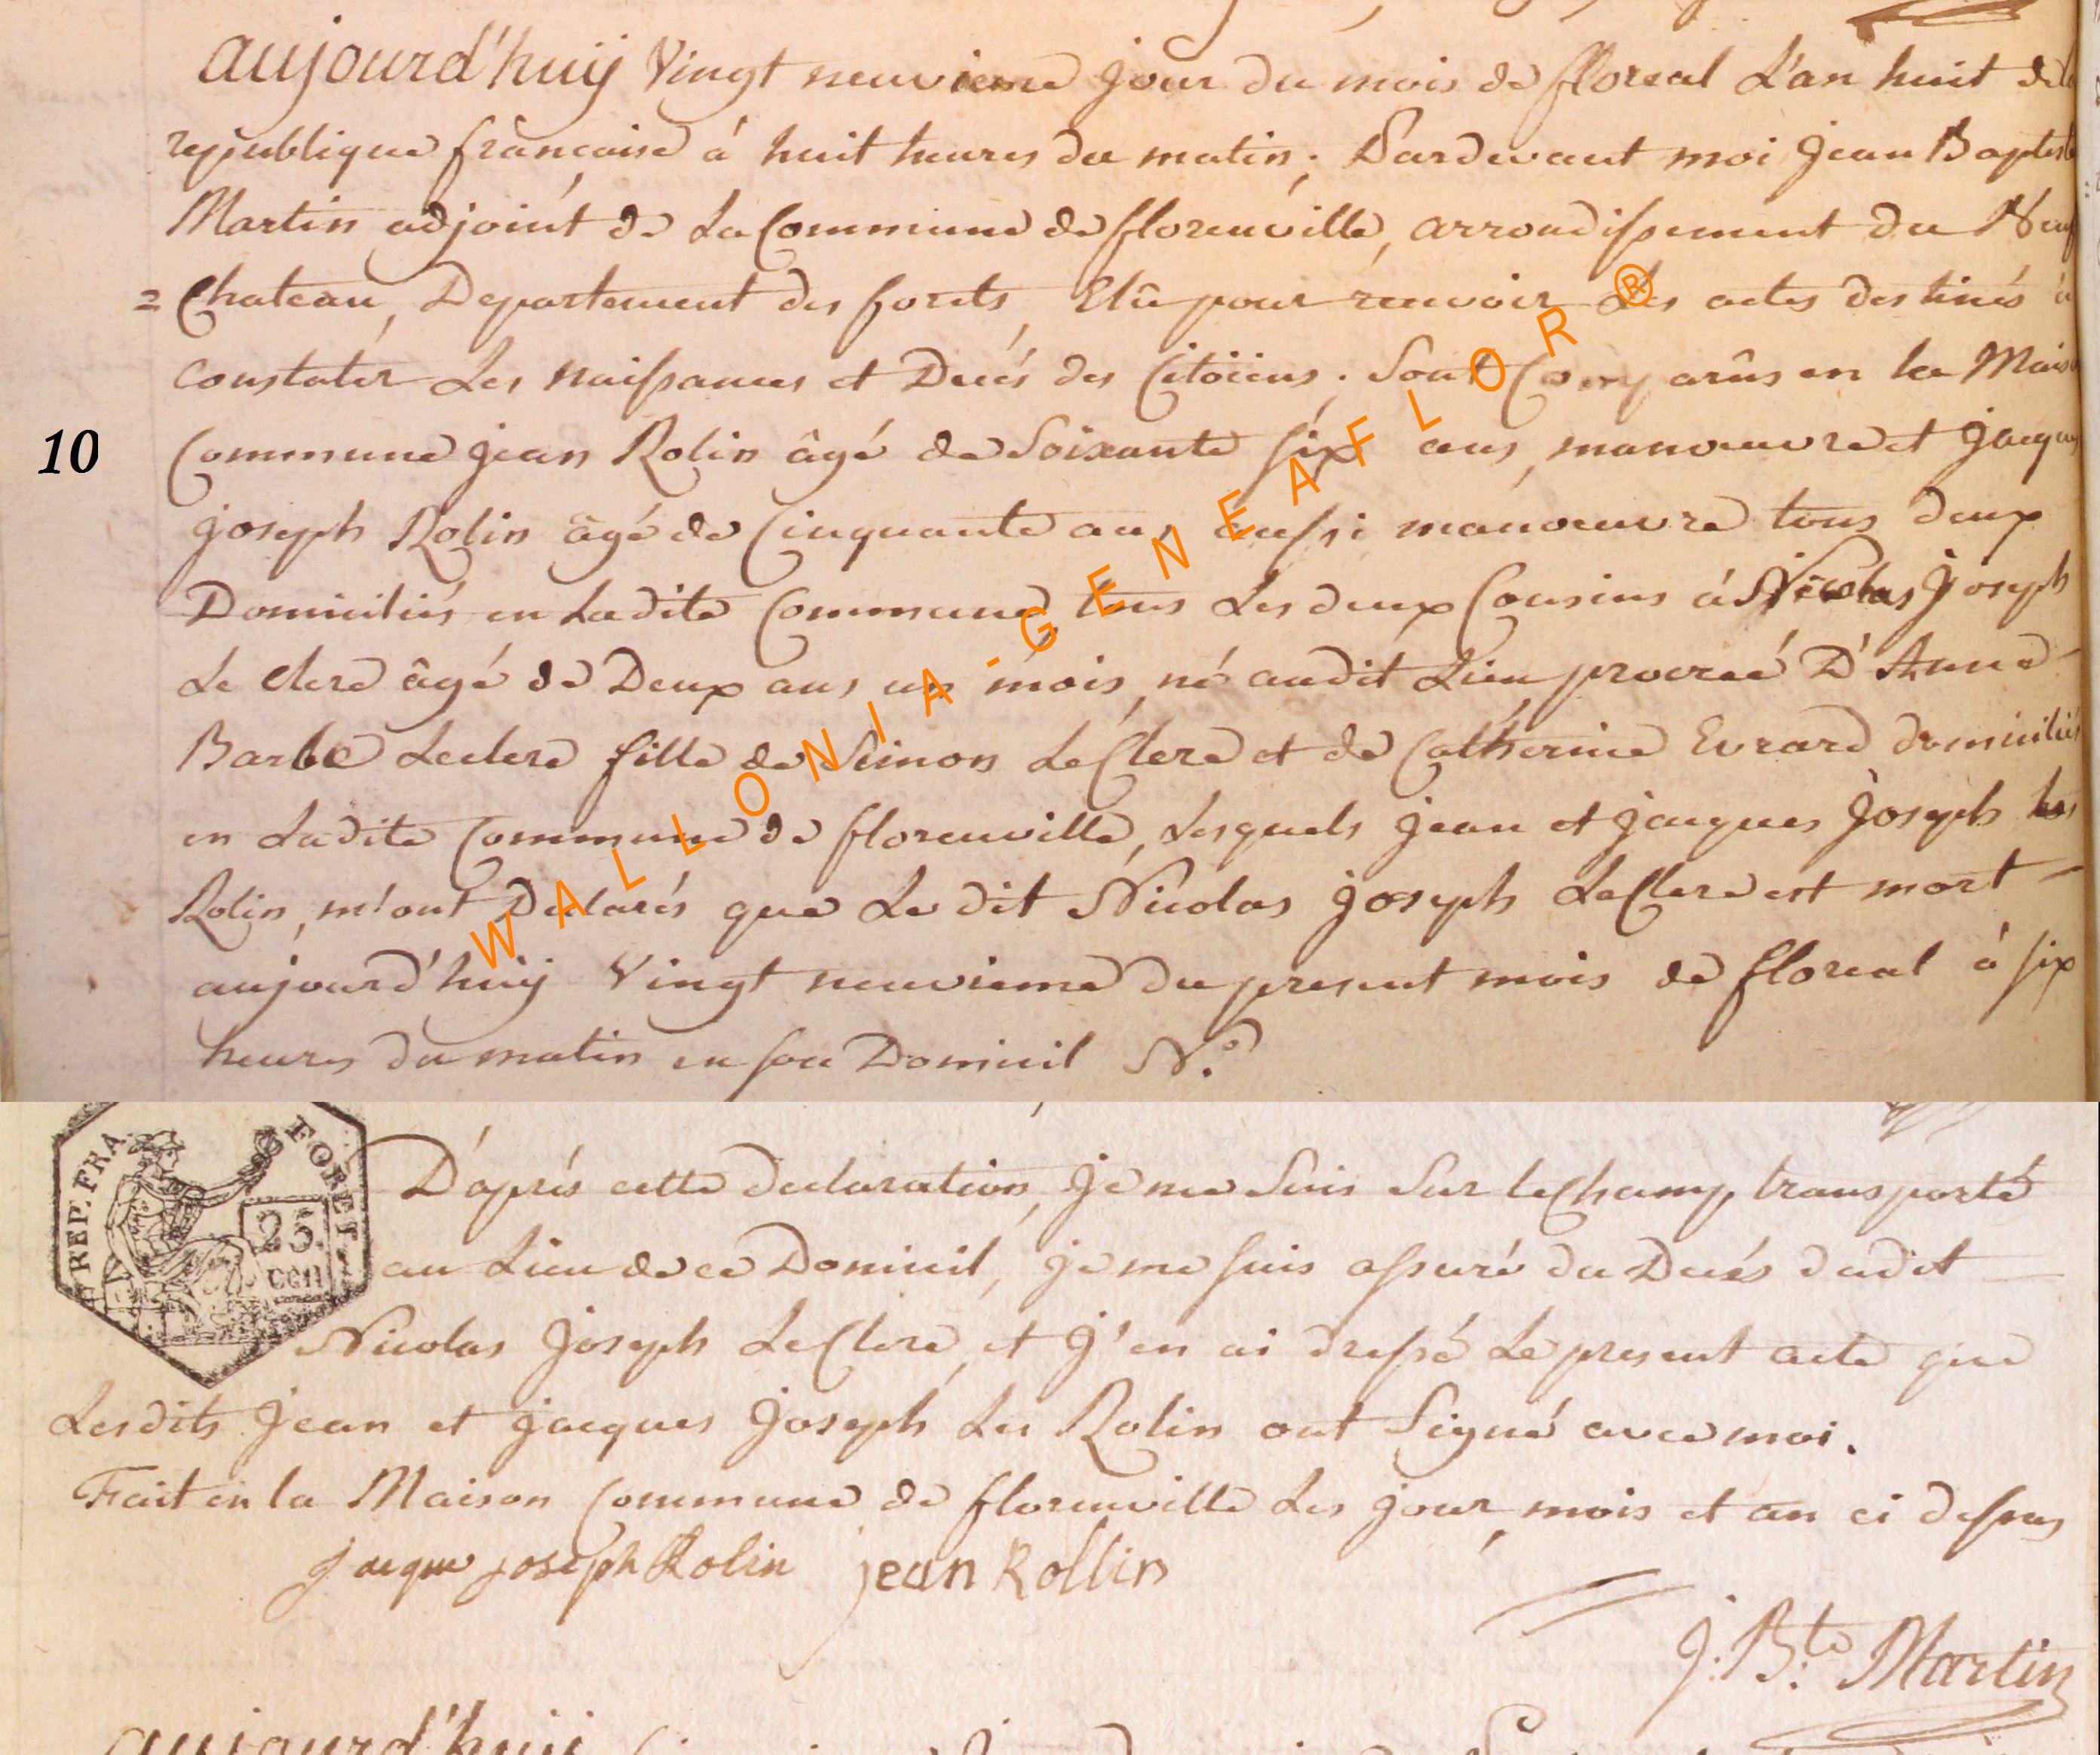 aujourd'huÿ Vingt neuvieme jour du mois de floreal L'an huit dela
republique francaise à huit heures du matin, Pardevant moi Jean Baptiste
Martin adjoint de La Commune de florenville, arrondissement du Neuf
= Chateau, Departement des forets, Elû pour recevoir Les actes destinés à
constater Les naissances et Decés des Citoïens. Sont Comparûs en la Maison
10
Commune jean Rolin âgé de Soixante six ans, manoeuvre et jacques
joseph Rolin âgé de Cinquante ans aussi manoeuvre tous deux
Domiciliés en Ladite Commune, tous Les deux Cousins à Nicolas Joseph
Le clere âgé de Deux ans un mois, né audit Lieu, procreé D'Anne
Barbe Leclere fille de Simon LeClere et de Catherine Evrard domiciliés
en Ladite Commune de florenville, Lesquels jean et jacques joseph les
Rolin, m'ont Declarés que Le dit Nicolas joseph LeClere est mort
aujourd'huÿ Vingt neuvieme du present mois de floreal à six
heures du matin en son Domicil N.º
WALLONIA-GENEAFLOR®
REP. FRA. FORETS
25. cen
D'aprés cette declaration, je me Suis Sur leChamp transporté
au Lieu de ce Domicil, je me suis assuré du Decés dudit
Nicolas Joseph LeClere, et j'en ai dressé Le present acte que
Lesdits Jean et jacques joseph Les Rolin ont Signé avec moi.
Fait en la Maison Commune de florenville Les jour, mois et an ci dessus
jacque joseph Rolin jean Rollin
J. B.te Martin
aujourd'huÿ